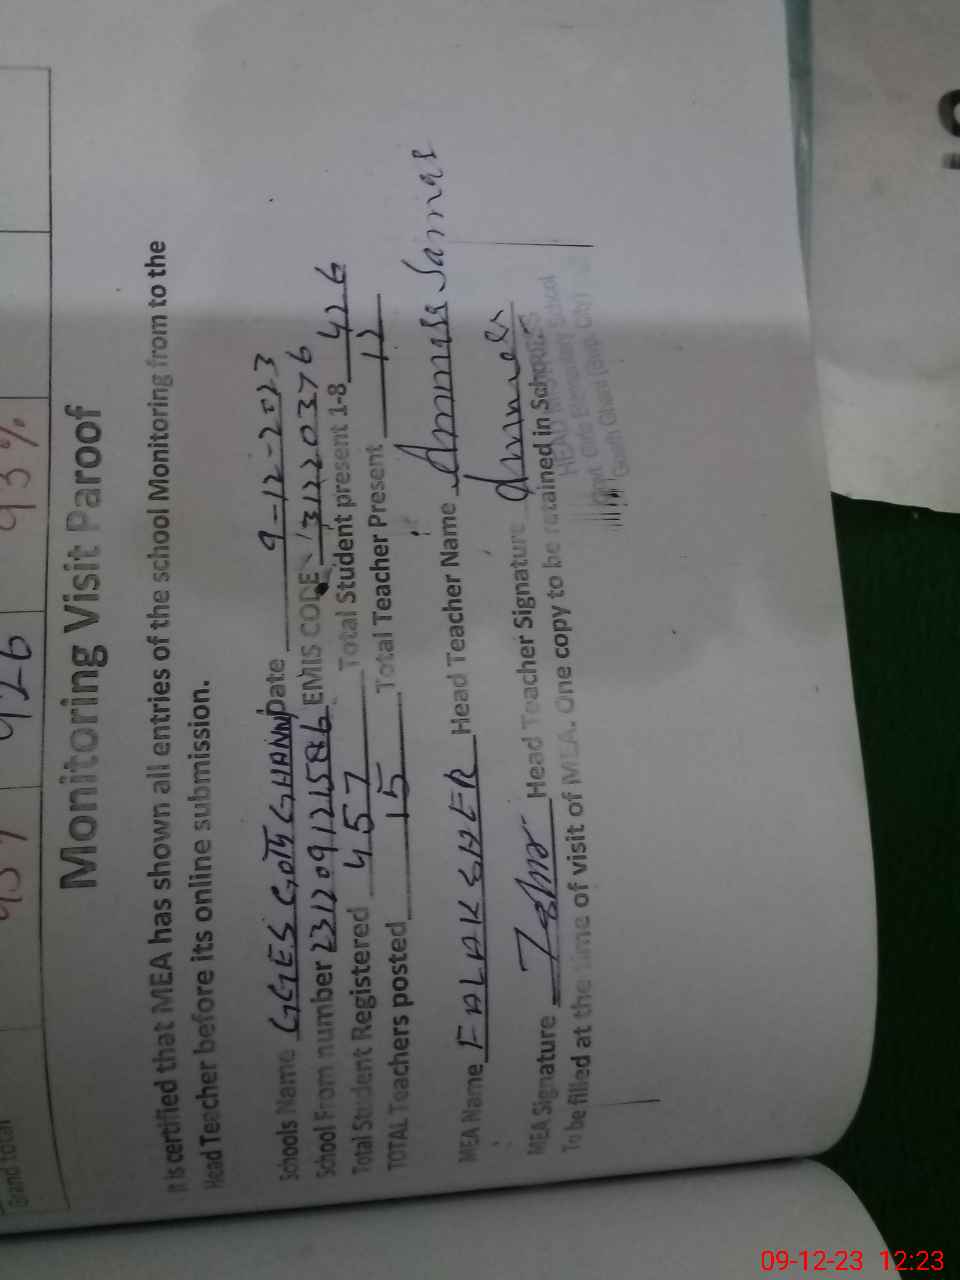 Grand total 457 426 93%
Monitoring Visit Paroof
It is certified that MEA has shown all entries of the school Monitoring from to the
Head Teacher before its online submission.
Schools Name GGES GOTH GHANNI Date 9-12-2023
School From number 231209121586 EMIS CODE 31220376
Total Student Registered 457 Total Student present 1-8 426
TOTAL Teachers posted 15 Total Teacher Present 12
MEA Name FALAK SHER Head Teacher Name
MEA Signature Head Teacher Signature
To be filled at the time of visit of MEA. One copy to be retained in School
HEAD MISTRESS
Govt. Girls Elementary School
Goth Ghani
09-12-23 12:23